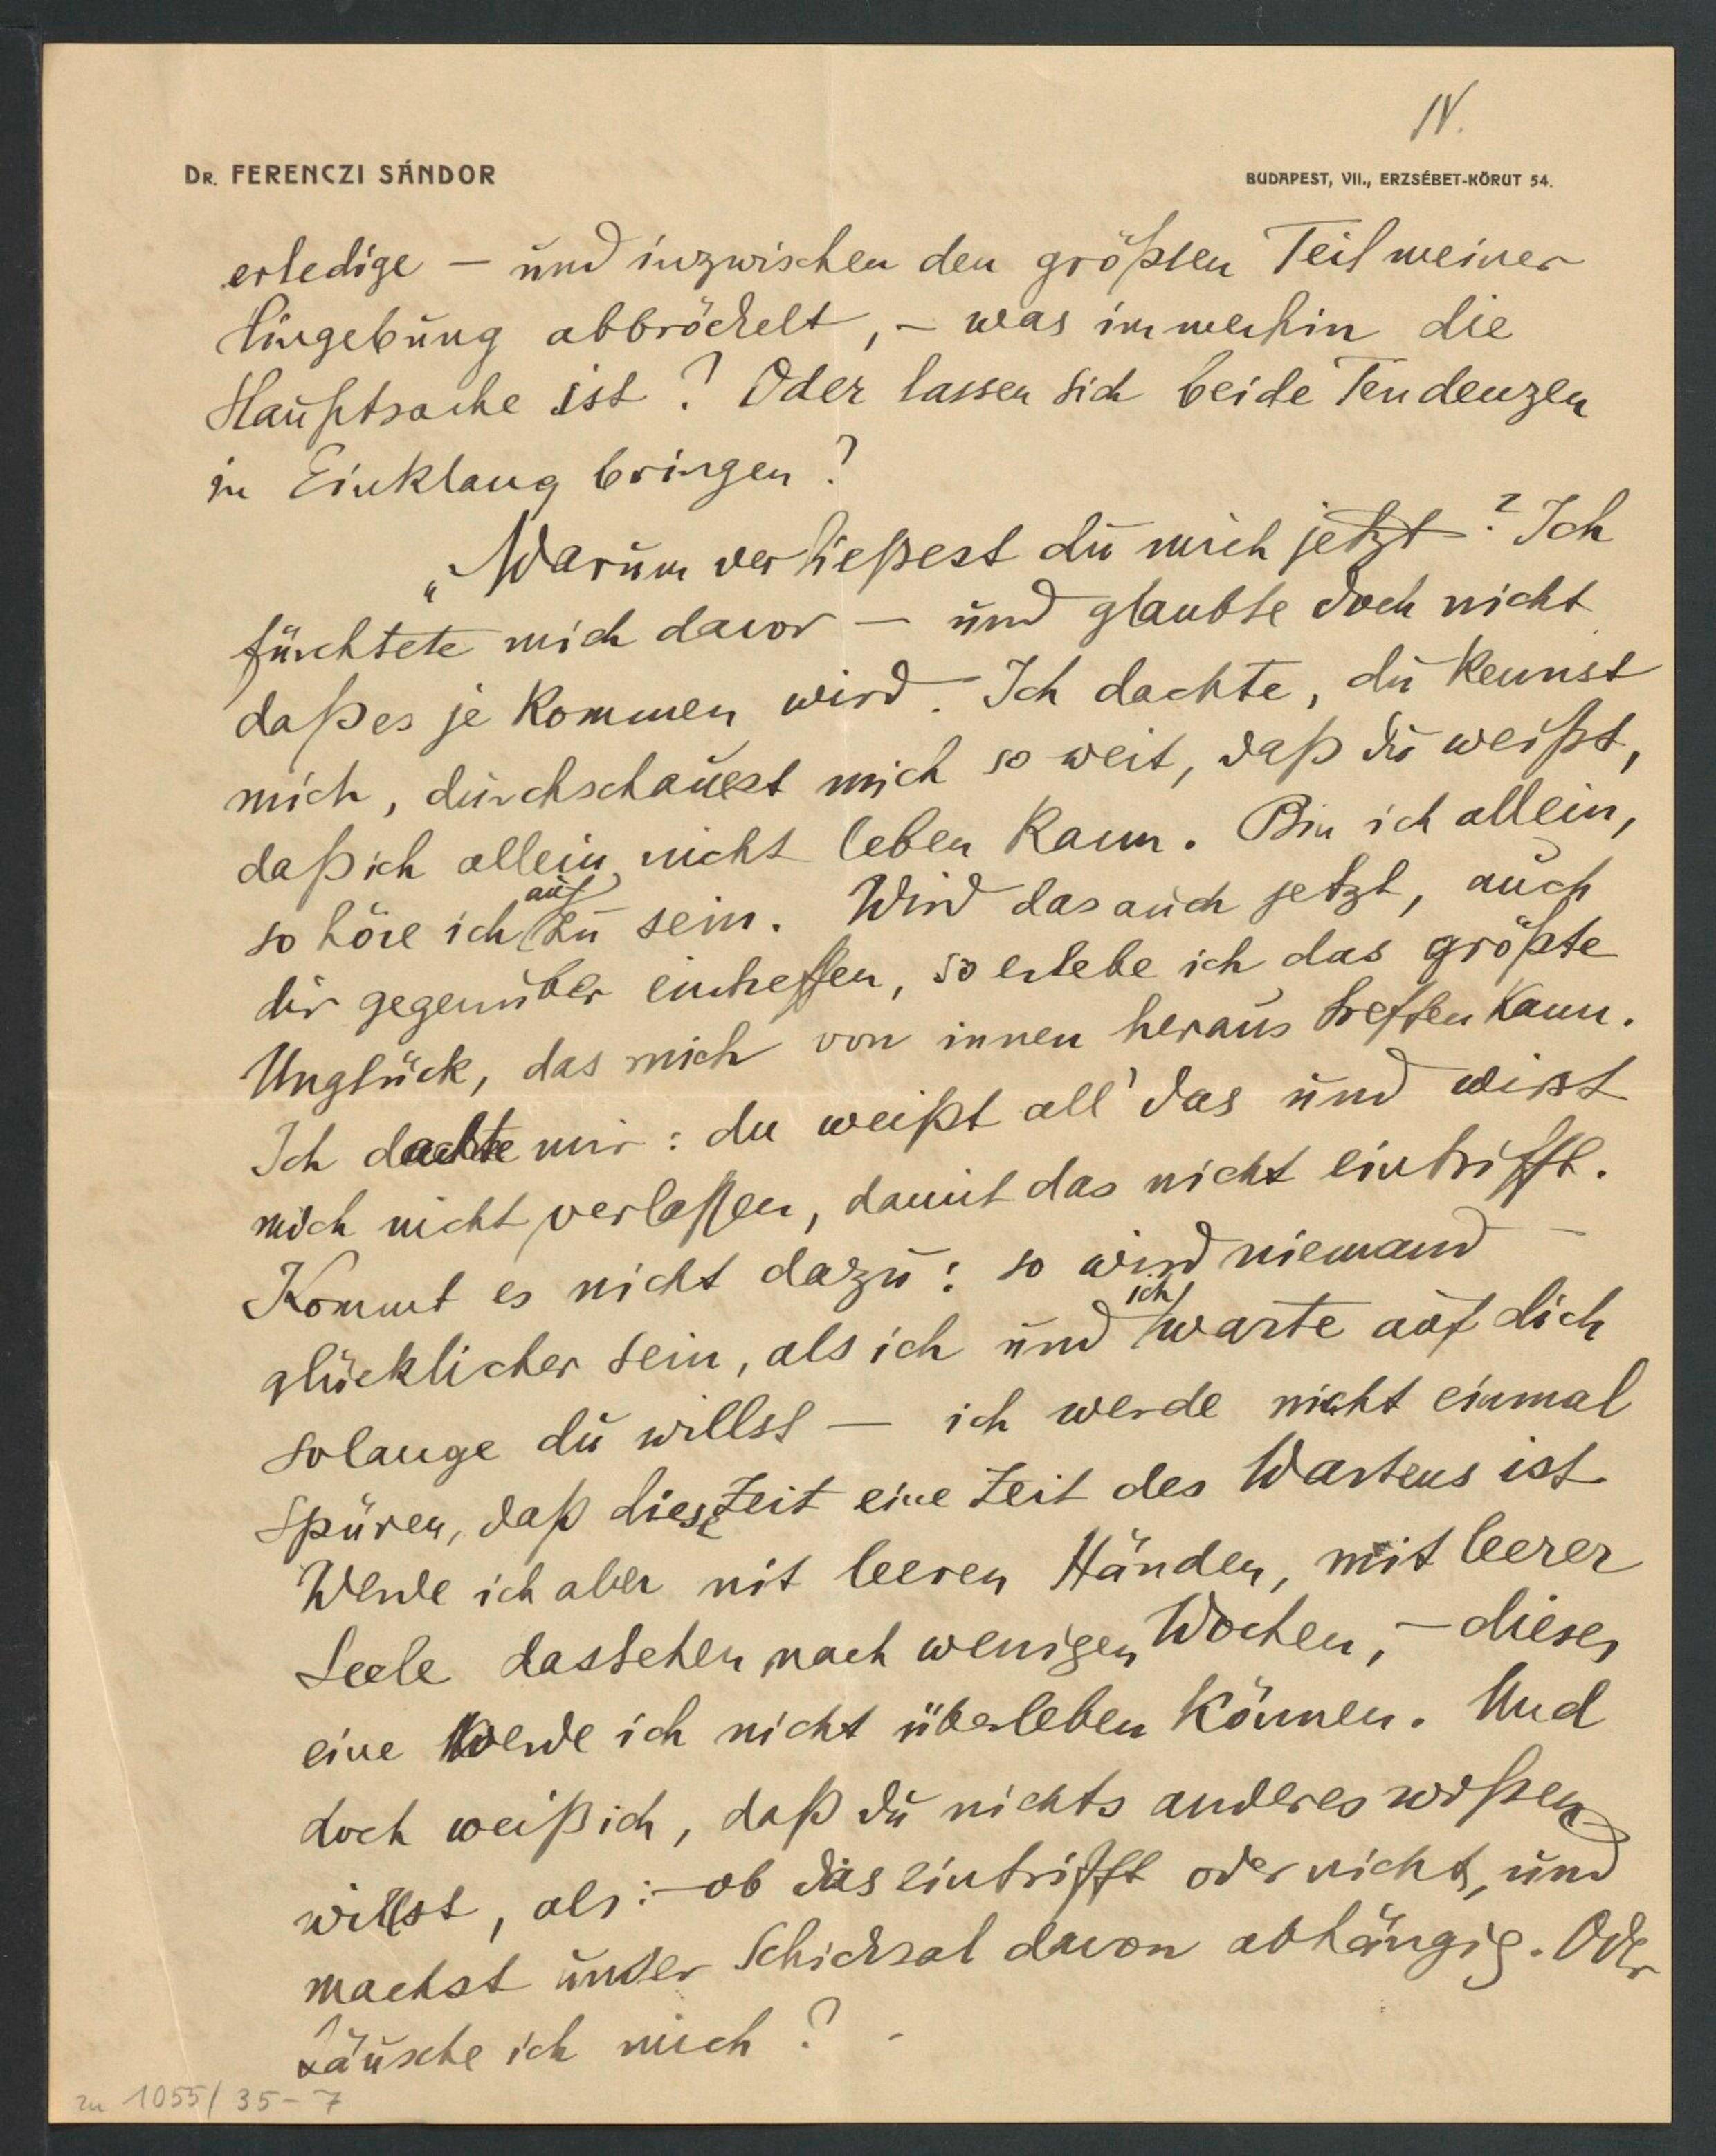 IV.
DR. FERENCZI SÁNDOR
BUDAPEST, VII., ERZSÉBET-KÖRUT 54.
erledige – und inzwischen den größten Teil meiner
Hingebung abbröckelt, – was immerhin die
Hauptsache ist? Oder lassen sich beide Tendenzen
in Einklang bringen?
„Warum verließest du mich jetzt? Ich
fürchtete mich davor – und glaubte doch nicht
daß es je kommen wird. Ich dachte, du kennst
mich, durchschauest mich so weit, daß du weißt,
daß ich allein nicht leben kann. Bin ich allein,
so höre ich auf zu sein. Wird das auch jetzt, auch
dir gegenüber eintreffen, so erlebe ich das größte
Unglück, das mich von innen heraus treffen kann.
Ich dachte mir: du weißt all' das und wirst
mich nicht verlaßen, damit das nicht eintrifft.
Kommt es nicht dazu: so wird niemand –
glücklicher sein, als ich und ich warte auf dich
solange du willst – ich werde nicht einmal
spüren, daß diese Zeit eine Zeit des Wartens ist
Werde ich aber mit leeren Händen, mit leerer
Seele dastehen nach wenigen Wochen, – dieses
eine werde ich nicht überleben können. Und
doch weiß ich, daß du nichts anderes wißen
willst, als: – ob das eintrifft oder nicht, und
machst unser Schicksal davon abhängig. Oder
täusche ich mich? –
zu 1055/35-7